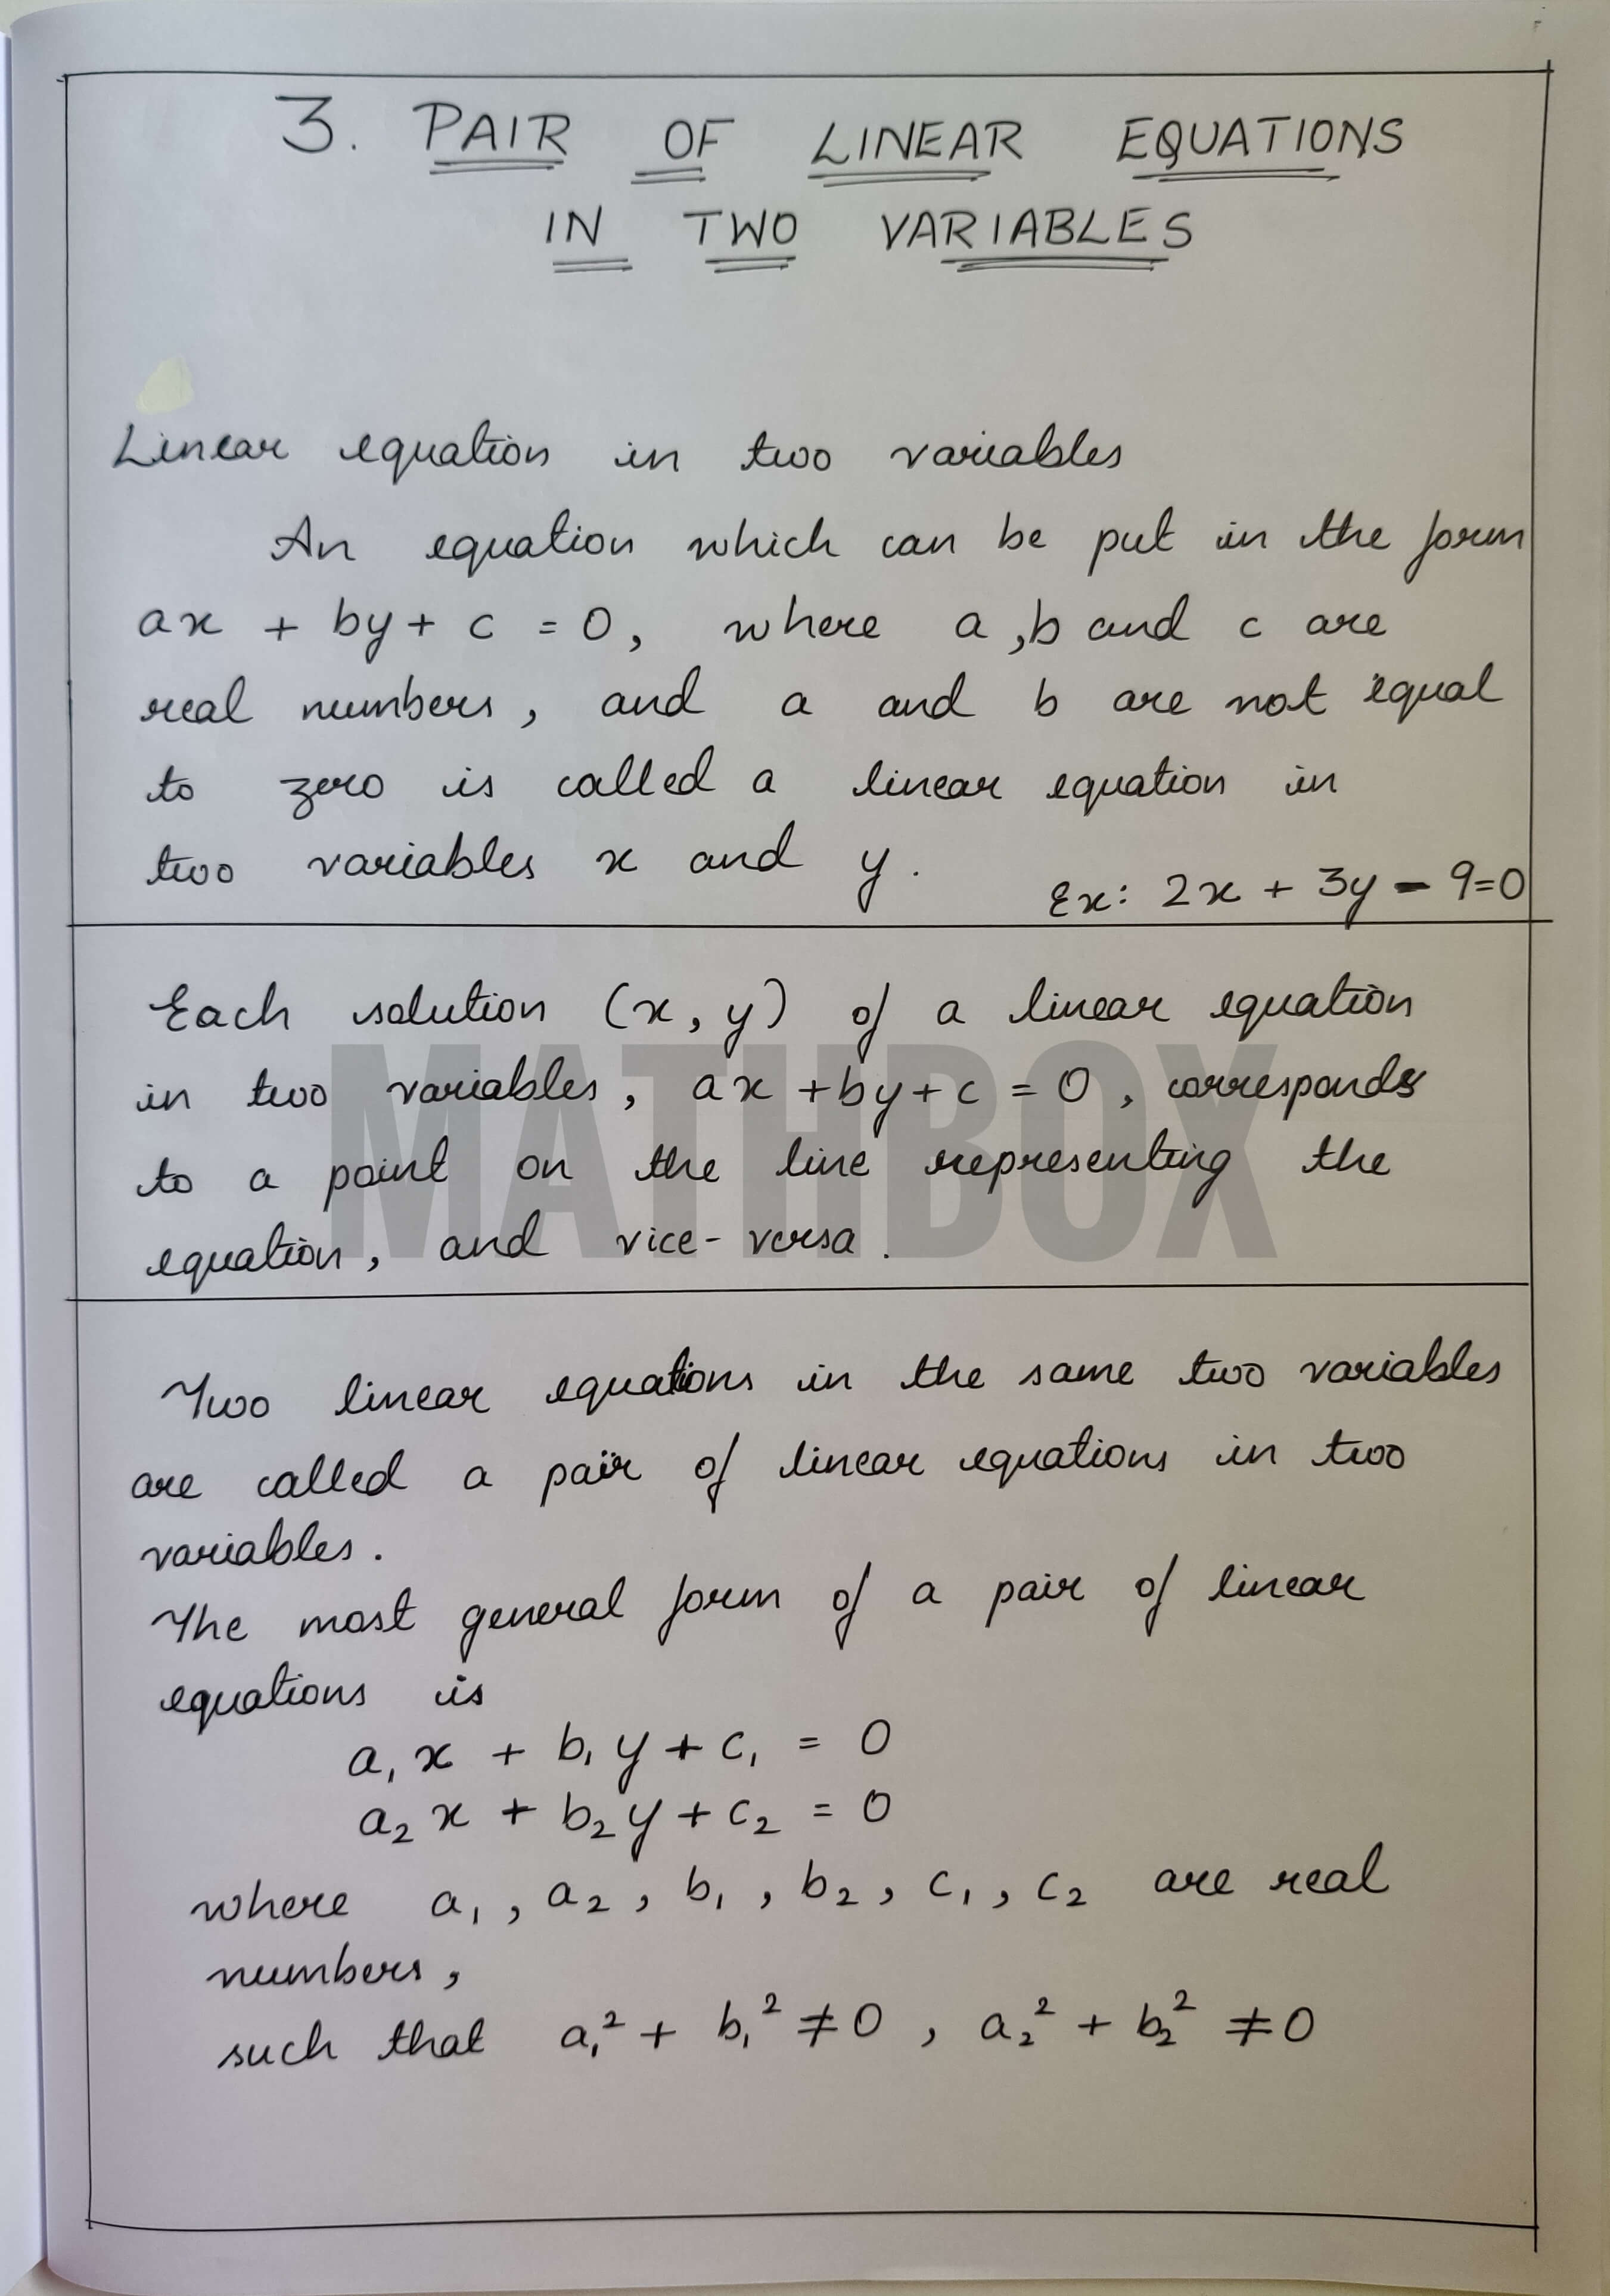 3. PAIR OF LINEAR EQUATIONS
IN TWO VARIABLES
Linear equation in two variables
An equation which can be put in the form
ax + by + c = 0, where a, b and c are
real numbers, and a and b are not equal
to zero is called a linear equation in
two variables x and y.
Ex: 2x + 3y - 9=0
Each solution (x, y) of a linear equation
in two variables, ax + by + c = 0, corresponds
to a point on the line representing the
equation, and vice-versa.
MATHBOX
Two linear equations in the same two variables
are called a pair of linear equations in two
variables.
The most general form of a pair of linear
equations is
a₁x + b₁y + c₁ = 0
a₂x + b₂y + c₂ = 0
where a₁, a₂, b₁, b₂, c₁, c₂ are real
numbers,
such that a₁² + b₁² ≠ 0, a₂² + b₂² ≠ 0